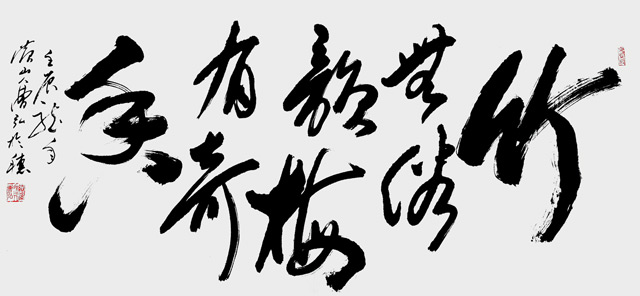 竹
無俗
韻梅
有奇
香
壬辰